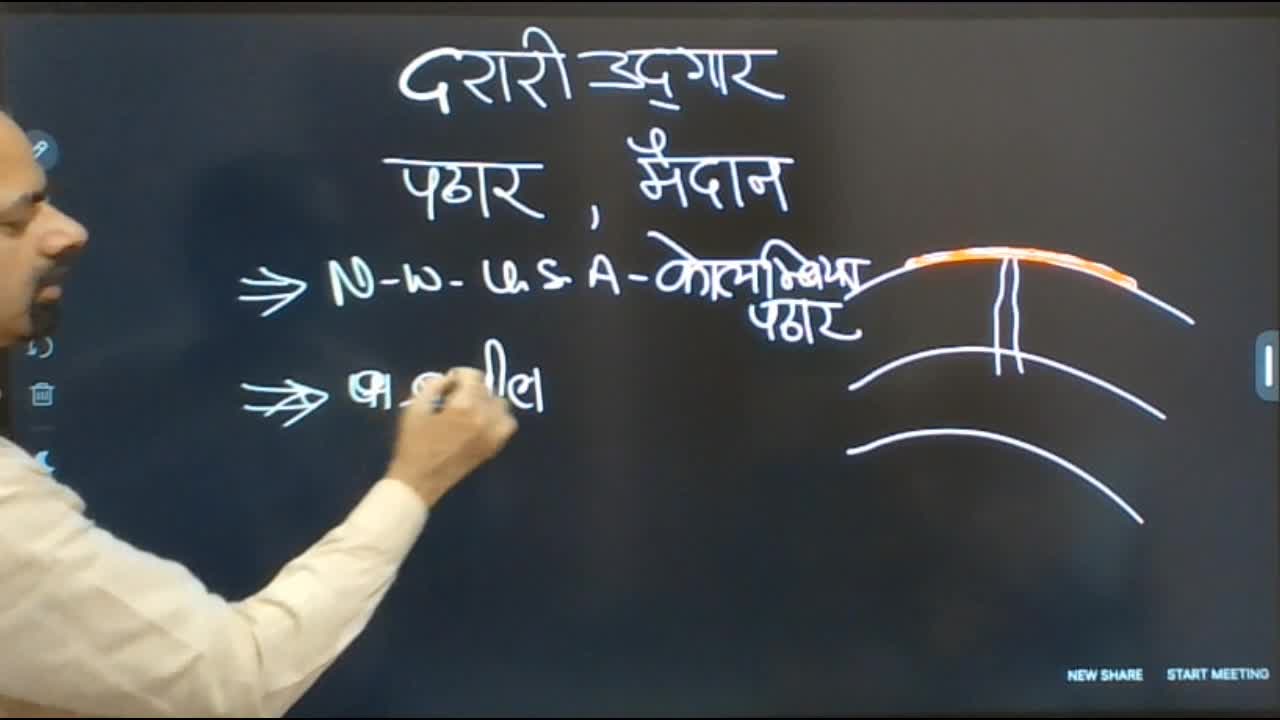 दरारी उद्गार
पठार , मैदान
⇒ N-W-U.S.A-कोलम्बिया
पठार
⇒
NEW SHARE START MEETING